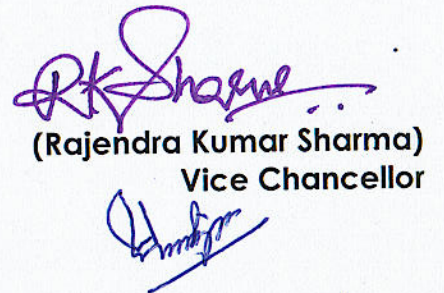 RK Sharma
(Rajendra Kumar Sharma)
Vice Chancellor